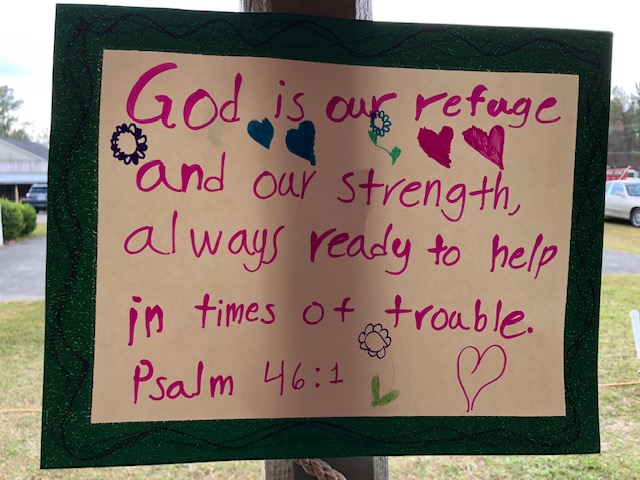 God is our refuge
and our strength,
always ready to help
in times of trouble.
Psalm 46:1